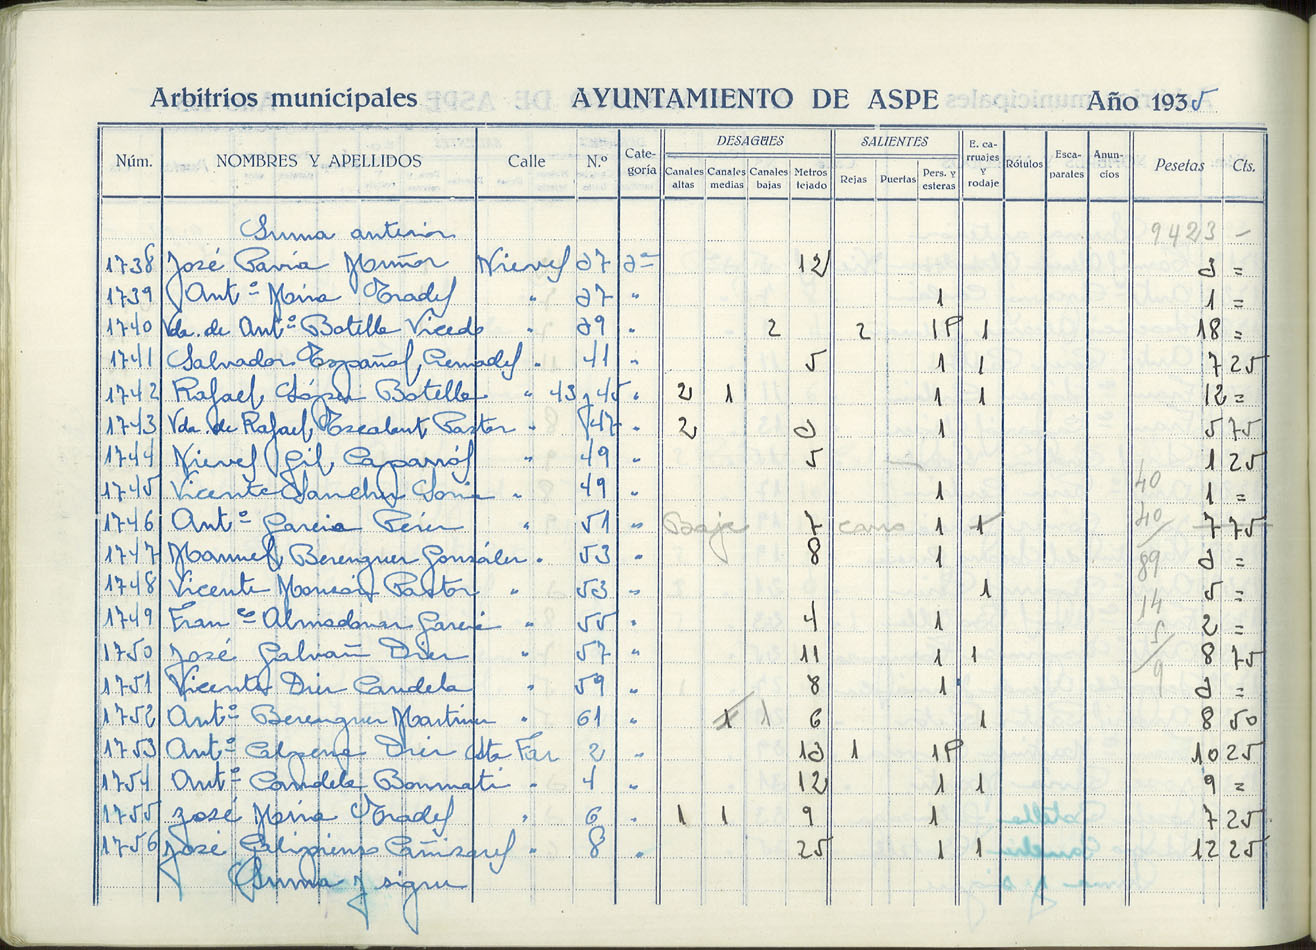 Arbitrios municipales AYUNTAMIENTO DE ASPE Año 1935
Núm. NOMBRES Y APELLIDOS Calle N.º Cate-goría DESAGUES Canales altas Canales medias Canales bajas Metros tejado SALIENTES Rejas Puertas Pers. y esteras E. carruajes y rodaje Rótulos Esca-parates Anun-cios Pesetas Cts.
Suma anterior 9423 –
1738 José Pavia Muñoz Nieves 27 2ª 12 3 =
1739 Antº Mira Prades " 27 " 1 1 =
1740 Vda. de Antº Botella Vicedo 29 " 2 2 1P 1 18 =
1741 Salvador Español Cremades " 41 " 5 1 1 7 25
1742 Rafael López Botella " 43 y 45 " 2 1 1 1 12 =
1743 Vda. de Rafael Escalant Pastor " 47 " 2 3 1 5 75
1744 Nieves Gil Caparrós " 49 " 5 1 25
1745 Vicente Sanchez Soria " 49 " 1 1 =
1746 Antº Garcia Pérez " 51 " Baja 7 casa 1 1 7 75
1747 Manuel Berenguer González " 53 " 8 1 3 =
1748 Vicente Monzón Pastor " 53 " 1 5 =
1749 Franco Almodovar Garcia " 55 " 4 1 2 =
1750 José Galvañ Diez " 57 " 11 1 1 8 75
1751 Vicente Diez Candela " 59 " 8 1 3 =
1752 Antº Berenguer Martinez " 61 " 1 1 6 1 8 50
1753 Antº Calpena Diez Sta Faz 2 " 13 1 1P 10 25
1754 Antº Candela Bonmati " 4 " 12 1 1 9 =
1755 José Maria Prades " 6 " 1 1 9 1 7 25
1756 José Cañizares " 8 " 25 1 1 12 25
Suma y sigue
40
40
89
14
5
9